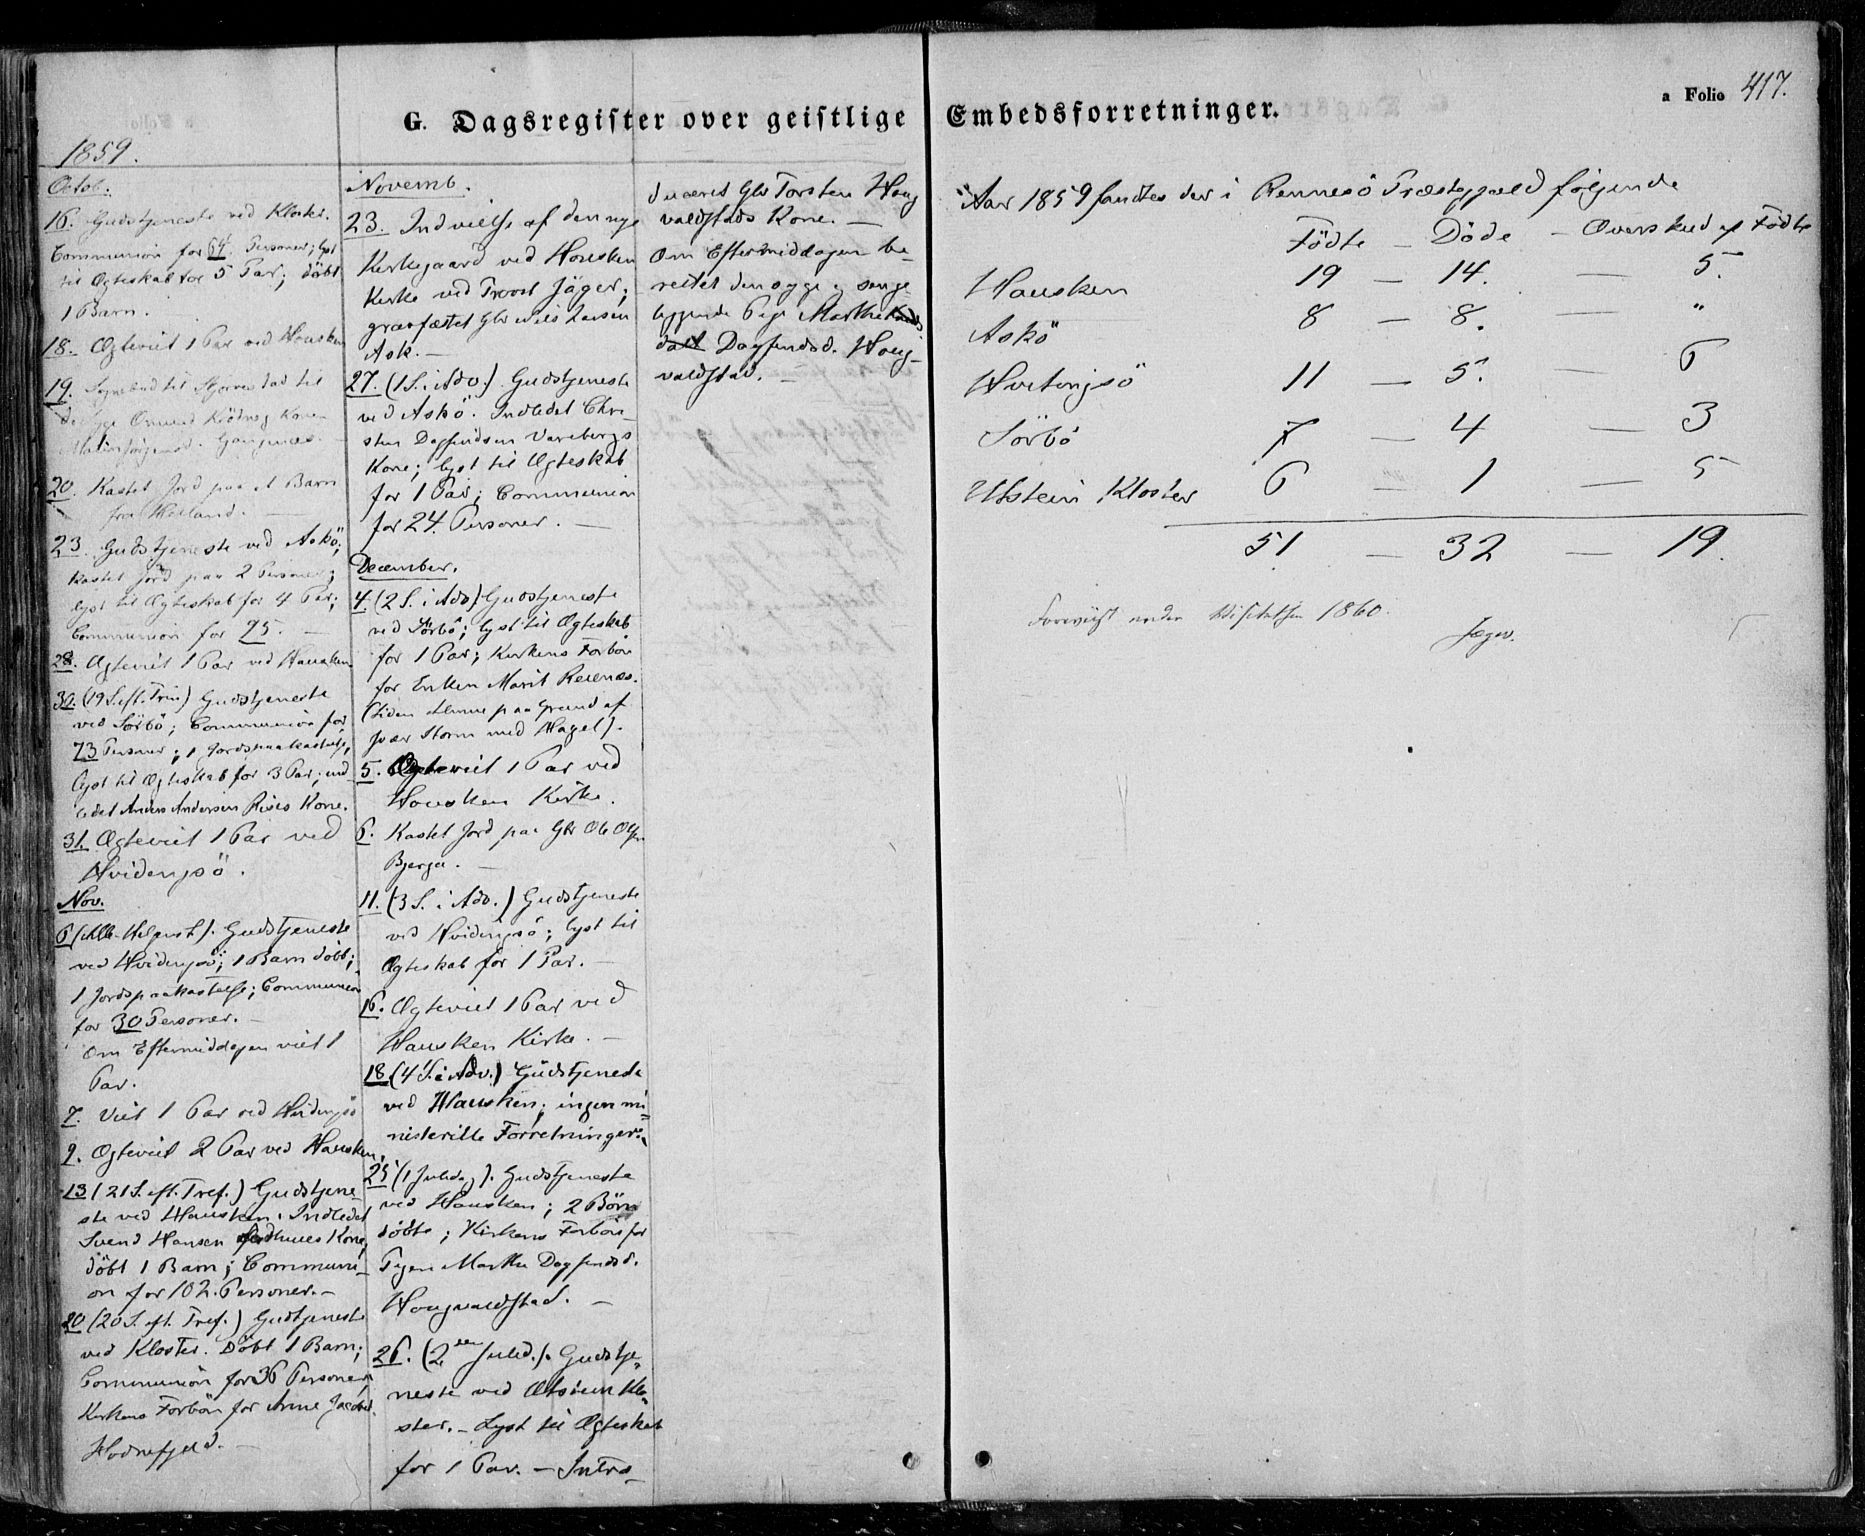 G. Dagsregister over geistlige
1859.
Octob.
16. Gudstjeneste ved Kloster.
Communion for 64 Personer; lyst
til Ægteskab for 5 Par; döbt
1 Barn.
18. Ægteviet 1 Par ved Hausken
19. Sognebud til
syge Kone
20. Kastet Jord paa et Barn
fra
23. Gudstjeneste ved Askö;
kastet Jord paa 2 Personer;
lyst til Ægteskab for 4 Par;
Communion for 95. —
28. Ægteviet 1 Par ved Hausken
30. (19 S. eft. Trin) Gudstjeneste
ved Sörbö; Communion for
73 Personer; 1 Jordspaakastelse,
lyst til Ægteskab for 3 Par; ind-
ledet Anders Andersen Rises Kone.
31. Ægteviet 1 Par ved
Hvidingsö.
Nov.
6 (Alle Helgenst). Gudstjeneste
ved Hvidingsö; 1 Barn döbt;
1 Jordspaakastelse; Communion
for 30 Personer. —
Om Eftermiddagen viet 1
Par.
7. Viet 1 Par ved Hvidingsö
9. Ægteviet 2 Par ved Hausken.
13 (21 S. eft. Tref.) Gudstjene-
ste ved Hausken. Indledet
Svend Hansen Kone,
döbt 1 Barn; Communi-
on for 102 Personer. —
20 (20 S. eft. Tref.) Gudstjeneste
ved Kloster. Döbt 1 Barn;
Communion for 36 Personer;
Kirkens Forbön for Anne Jacobsd.
Hodnefjeld. —
Novemb.
23. Indvielse af den nye
Kirkegaard ved Hausken
Kirke ved Provst Jäger;
gravfæstet Gbr Nils Larsen
Ask. —
27. (1 S. i Adv.) Gudstjeneste
ved Askö. Indledet Chri-
sten Dagfindsen Varebergs
Kone; lyst til Ægteskab
for 1 Par; Communion
for 24 Personer. —
December.
4. (2 S. i Adv) Gudstjeneste
ved Sörbö; lyst til Ægteskab
for 1 Par; Kirkens Forbön
for Enken Marit Reienæs.
(Siden hjemme paa Grund af
svær Storm med Hagel).
5. Ægteviet 1 Par ved
Hausken Kirke.
6. Kastet Jord paa Gbr Ole Olsen
Bjerga. —
11. (3 S. i Adv.) Gudstjeneste
ved Hvidingsö; lyst til
Ægteskab for 1 Par. —
16. Ægteviet 1 Par ved
Hausken Kirke. —
18 (4 S. i Adv.) Gudstjeneste
ved Hausken; ingen mi-
nisterielle Forretninger. —
25 (1 Juledag). Gudstjeneste
ved Hausken; 2 Börn
döbte; Kirkens Forbön for
Pigen Marthe Dagfindsd.
Hougvaldstad. —
26. (2den Juled.). Gudstje-
neste ved Utstein Klo-
ster. — Lyst til Ægteskab
for 1 Par. — Intro-
duceret Gbr Torsten Houg
valdstads Kone. —
Om Eftermiddagen be-
rettet den syge og senge
liggende Pige Marthe
Dagfindsd. Houg-
valdstad. —
Embedsforretninger.
a Folio 417.
Aar 1859 fandtes der i Rennesö Præstegjæld følgende
Födte — Döde — Overskud af Födte
Hausken 19 — 14. — 5.
Askö 8 — 8. — "
Hvitingsö 11 — 5. — 6
Sörbö 7 — 4 — 3
Utstein Kloster 6 — 1 — 5
51 — 32 — 19.
Foreviist under Visitatsen 1860.
Jæger.